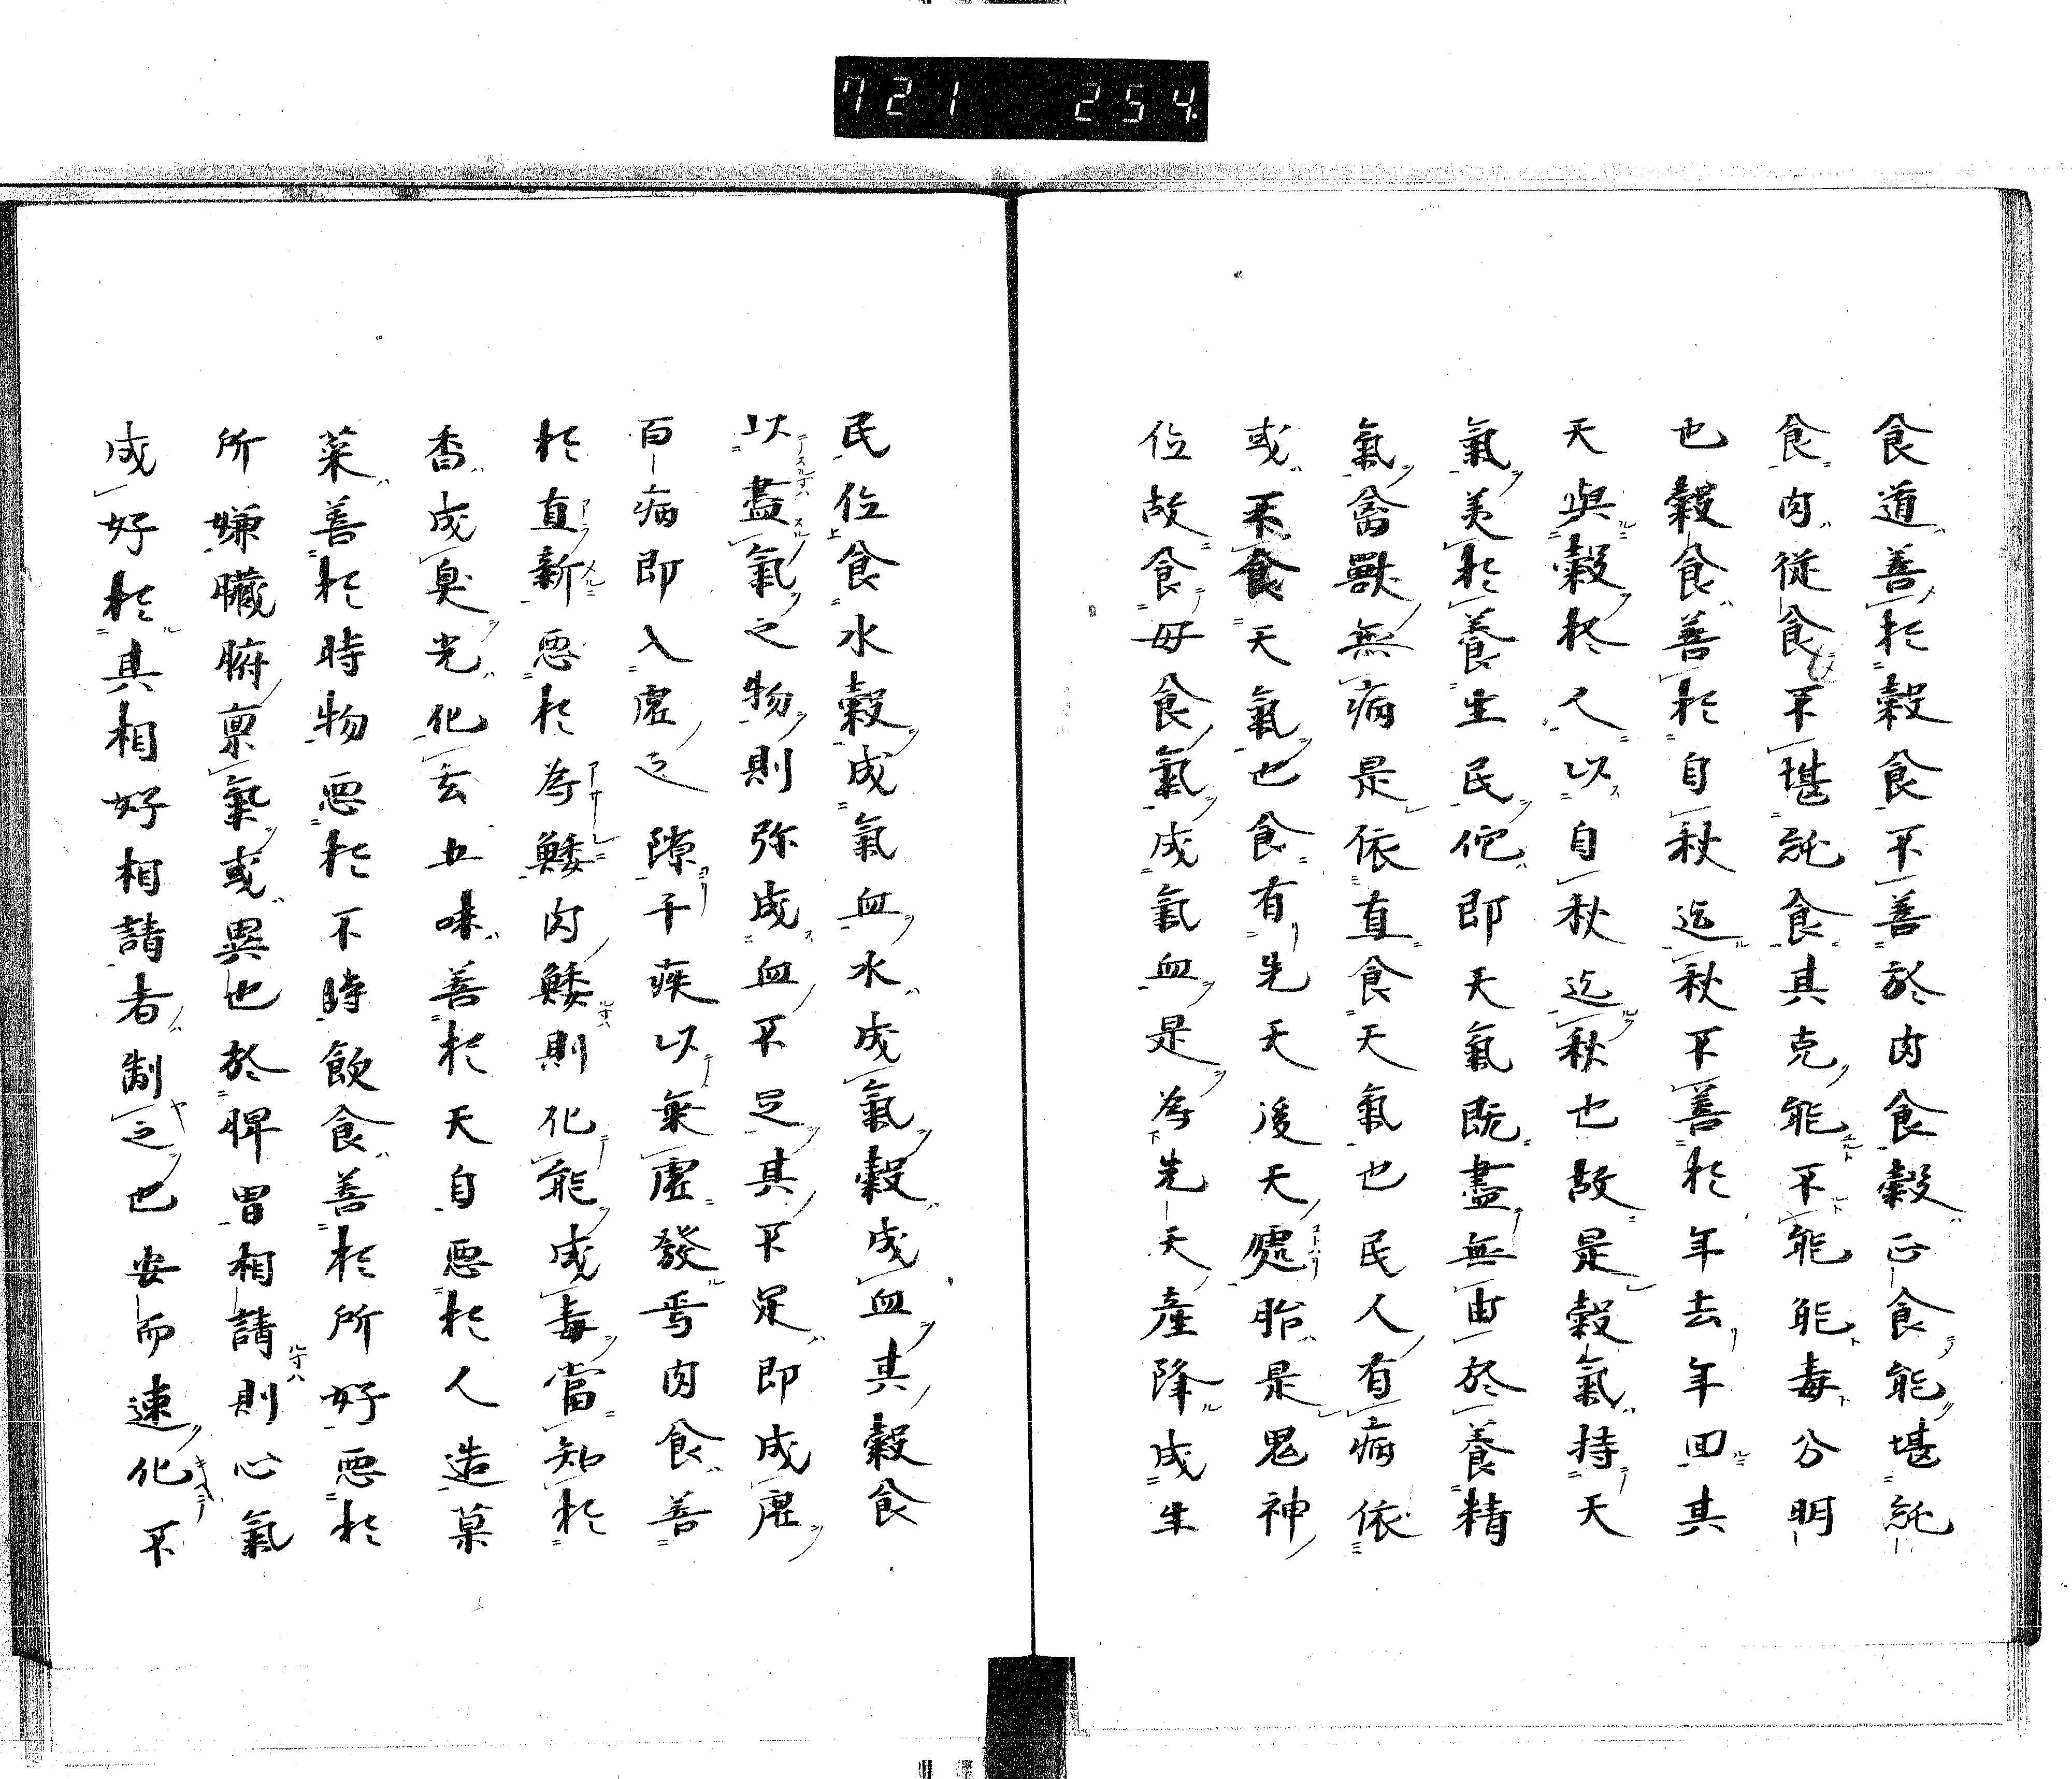 721 254
食道善於穀食不善於肉食穀正食能堪能
食肉從食不堪能食其克能不能能毒分明
也穀食善於自秋迄秋不善於年去年回其
天與穀於人以自秋迄秋也故是穀氣持天
氣美於養生民佗即天氣既盡無由於養精
氣禽獸無病是依直食天氣也民人有病依
或不食天氣也食有先天後天處胎是鬼神
位故食母食氣成氣血是為先天產降成生
民位食水穀成氣血水成氣穀成血其穀食
以盡氣之物則弥成血不足其不足即成虛
百病即入虛之隙千疾以氣虛發焉肉食善
於直新惡於為鯘肉鯘則化能成毒當知於
香成臭光化去五味善於天自惡於人造菓
菜善於時物惡於不時飲食善於所好惡於
所嫌臟腑稟氣或異也於脾胃相請則心氣
成好於其相好相請者制之也安而速化不